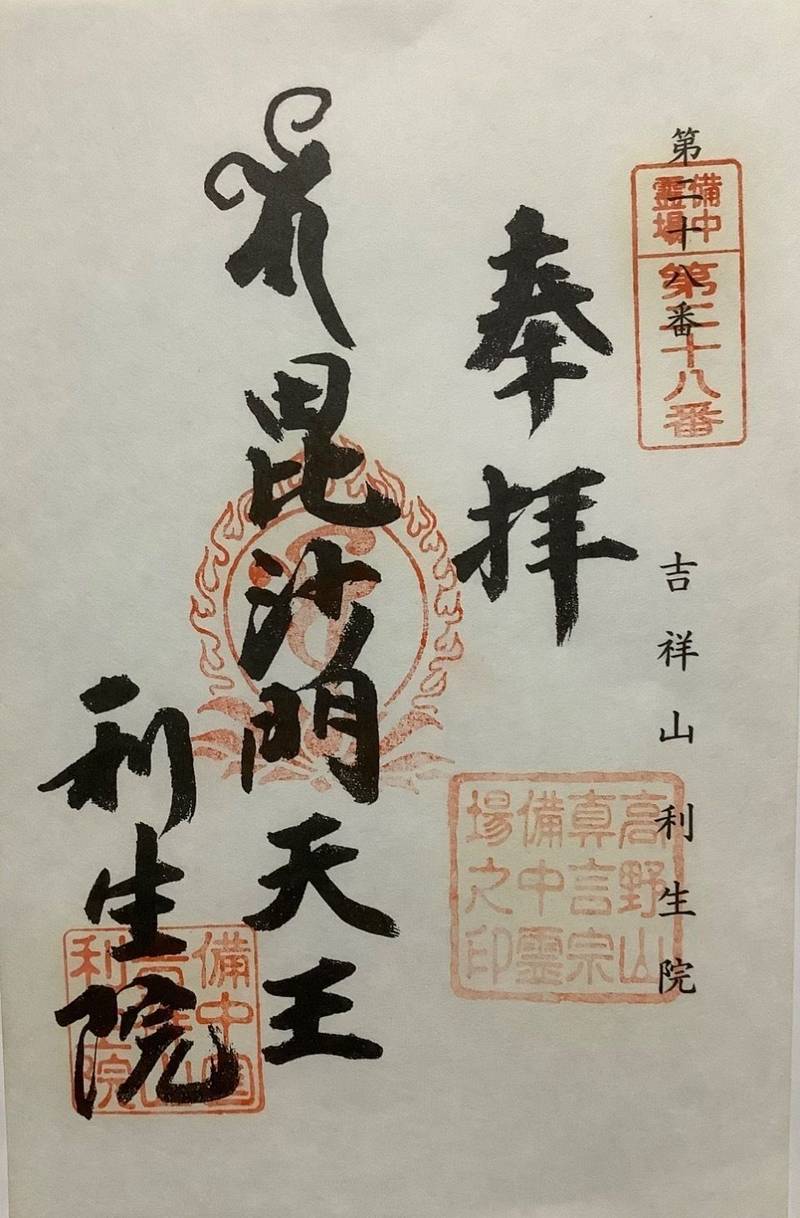 備中
霊場
第二十八番
第二十八番
吉祥山利生院
奉拝
高野山
真言宗
備中霊
場之印
毘沙門天王
利生院
備中国
吉祥山
利生院